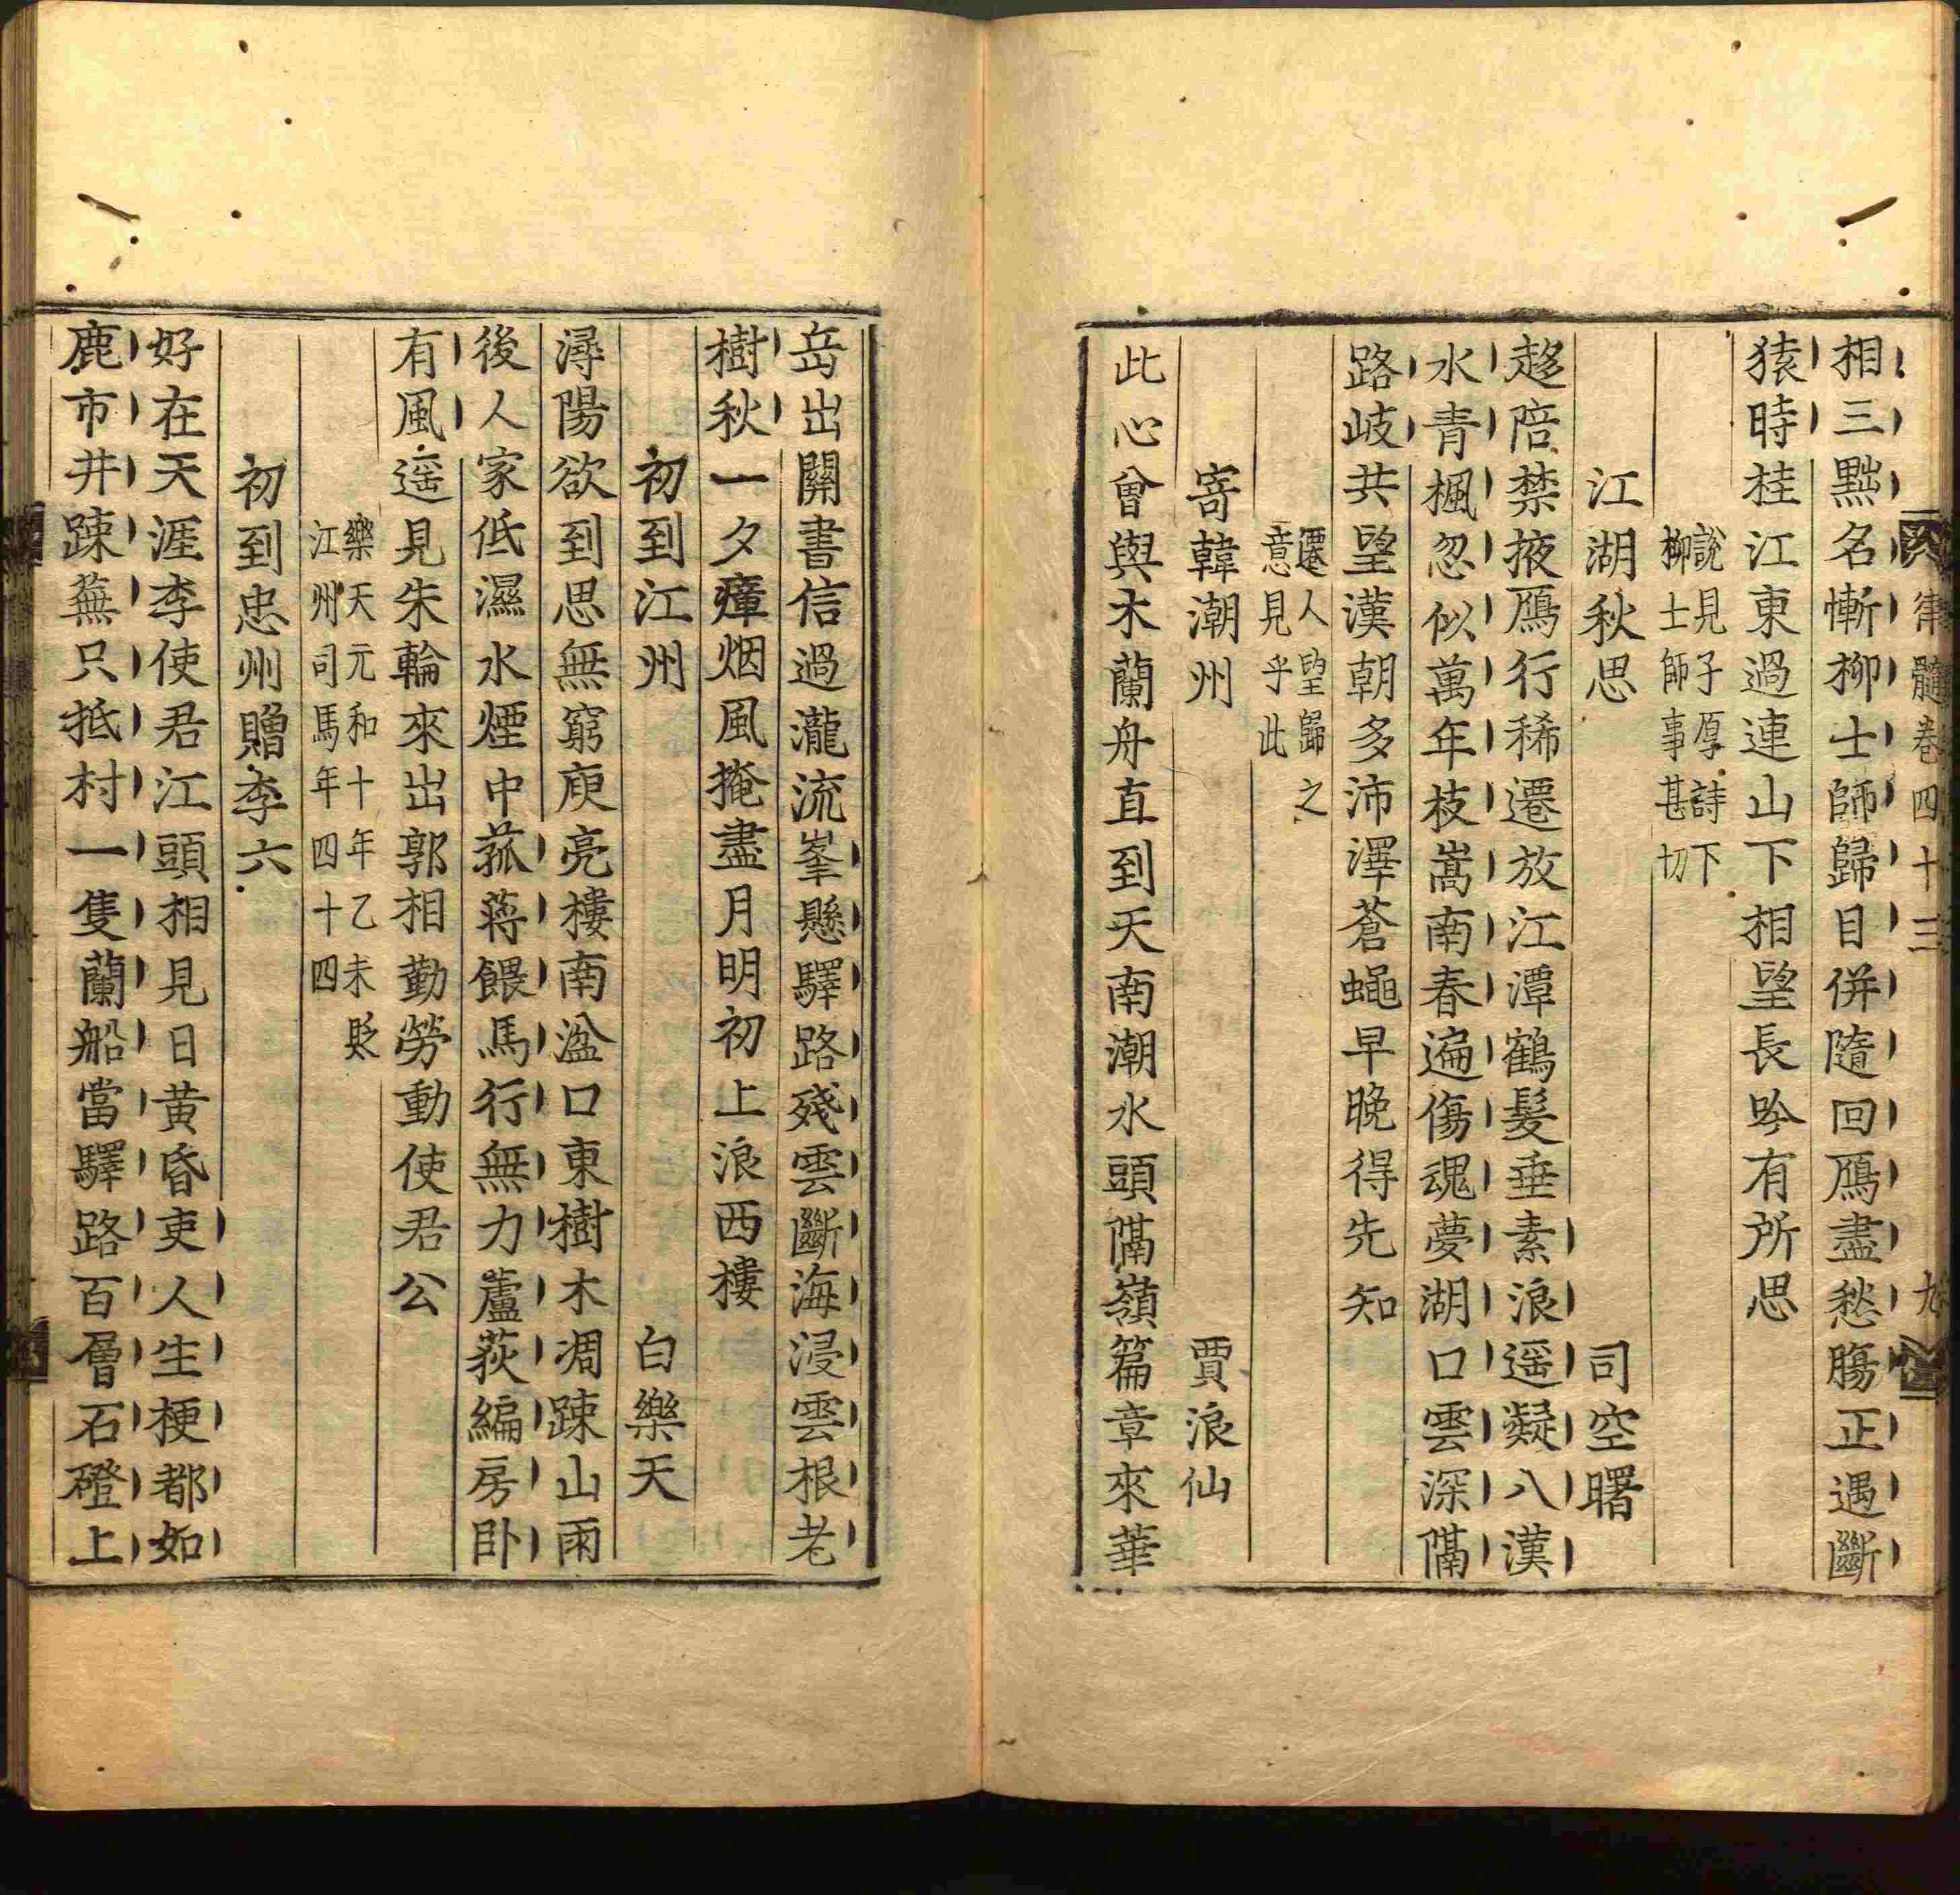 律髓卷四十三 九
相三黜名慚柳士師歸目併隨回鴈盡愁膓正遇斷
猿時桂江東過連山下相望長吟有所思
說見子厚詩下
柳士師事甚切
江湖秋思 司空曙
趍陪禁掖鴈行稀遷放江潭鶴髮垂素浪遥凝八漢
水青楓忽似萬年枝嵩南春遍傷魂夢湖口雲深隔
路岐共望漢朝多沛澤蒼蠅早晚得先知
遷人望歸之
意見乎此
寄韓潮州 賈浪仙
此心曾與木蘭舟直到天南潮水頭隔嶺篇章來華
岳出關書信過瀧流峯懸驛路殘雲斷海浸雲根老
樹秋一夕瘴烟風掩盡月明初上浪西樓
初到江州 白樂天
潯陽欲到思無窮庾亮樓南湓口東樹木凋踈山雨
後人家低濕水煙中菰蔣餵馬行無力蘆荻編房卧
有風遥見朱輪來出郭相勤勞動使君公
樂天元和十年乙未貶
江州司馬年四十四
初到忠州贈李六
好在天涯李使君江頭相見日黄昏吏人生梗都如
鹿市井踈蕪只抵村一隻蘭船當驛路百層石磴上